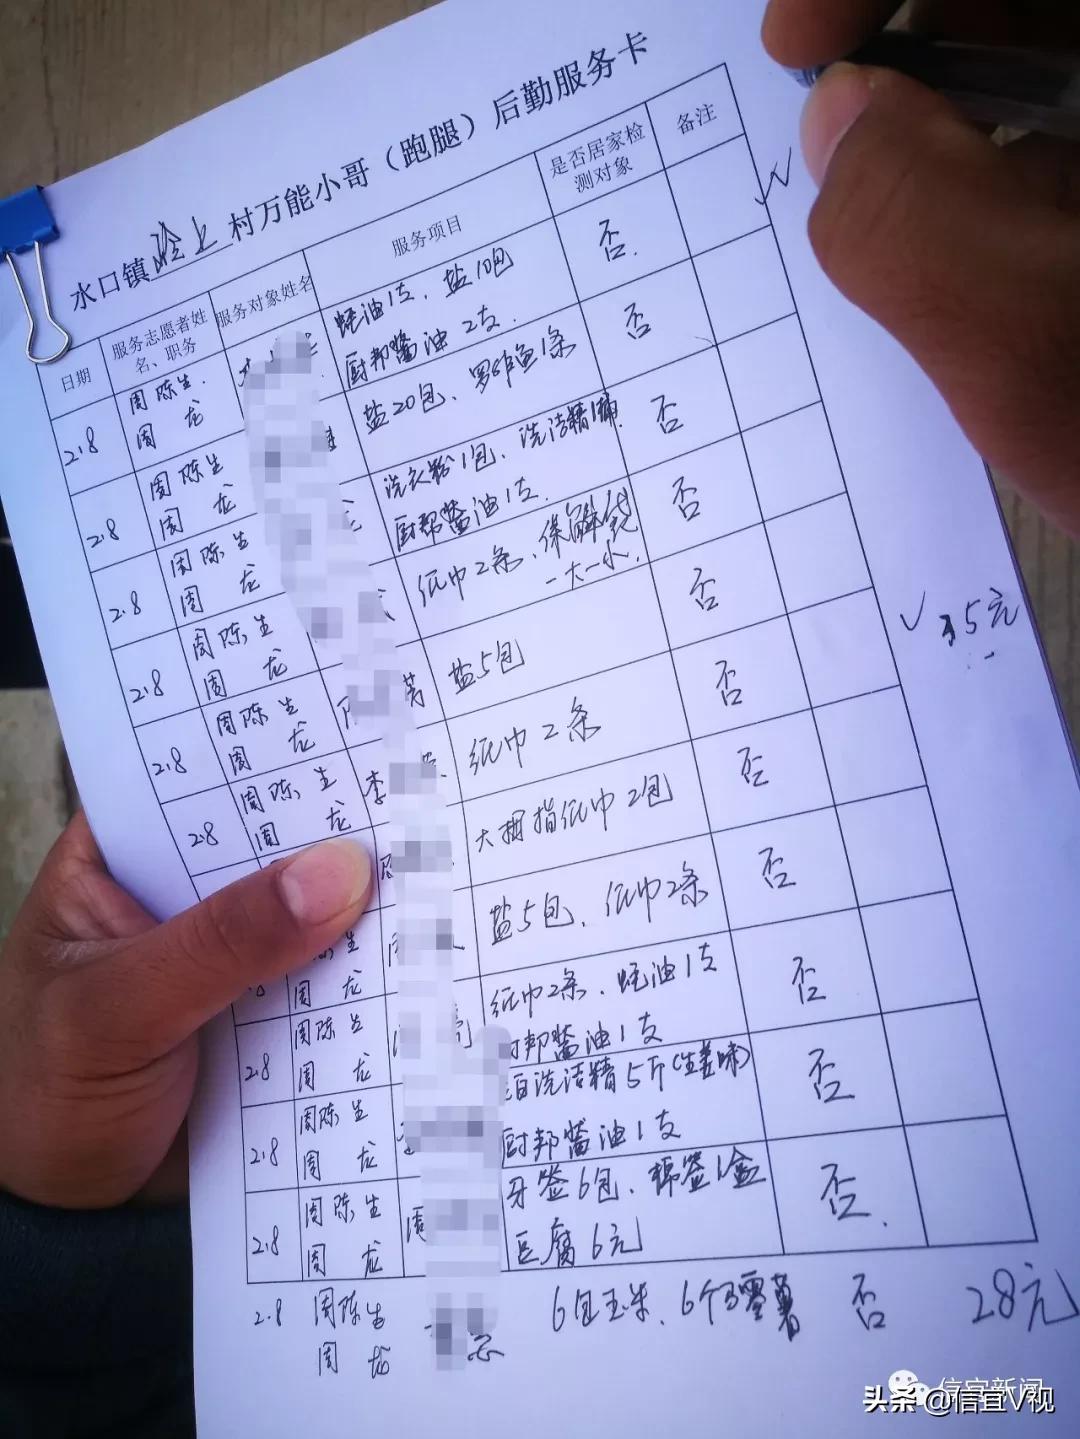 水口镇 岭上 村万能小哥（跑腿）后勤服务卡
日期 服务志愿者姓名、职务 服务对象姓名 服务项目 是否居家检测对象 备注
2.8 周陈生. 周龙 蚝油1支、盐10包 厨邦酱油2支. 否.
2.8 周陈生 周龙 盐20包、罗非鱼1条 否
2.8 周陈生 周龙 洗衣粉1包、洗洁精1桶. 厨邦酱油1支. 否
2.8 周陈生 周龙 纸巾2条、保鲜袋 一大一小. 否
2.8 周陈生 周龙 盐5包 否 ✓ 15元
2.8 周陈生 周龙 李 纸巾2条 否
大拇指纸巾2包 否
.8 生 周龙 盐5包、纸巾2条 否
2.8 周陈生 周龙 纸巾2条、蚝油1支 厨邦酱油1支 否
2.8 周陈生 周龙 洗洁精5斤(生姜味) 厨邦酱油1支 否
2.8 周陈生 周龙 周 牙签6包、棉签1盒 豆腐6元 否.
2.8 周陈生 周龙 6包玉米、6个马零薯 否 28元
信宜新闻
头条@信宜V视